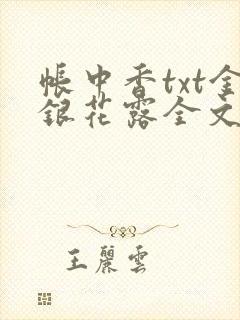 帳中香txt金
銀花露全文
王麗雲